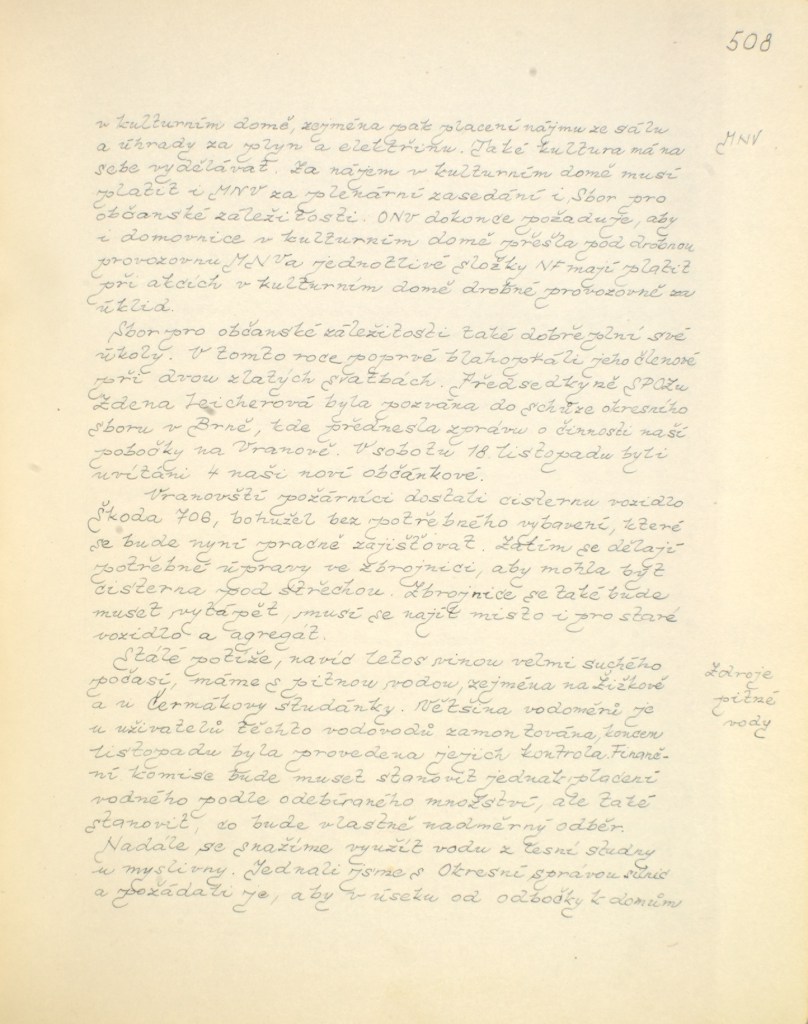 508
v kulturním domě, zejména pak placení nájmu ze sálu
MNV
a úhrady za plyn a elektřinu. Také kultura má na
sebe vydělávat. Za nájem v kulturním domě musí
platit i MNV za plenární zasedání i Sbor pro
občanské záležitosti. ONV dokonce požaduje, aby
i domovnice v kulturním domě přešla pod drobnou
provozovnu MNV a jednotlivé složky NF mají platit
při akcích v kulturním domě drobné provozovně za
úklid.
Sbor pro občanské záležitosti také dobře plní své
úkoly. V tomto roce poprvé blahopřáli jeho členové
při dvou zlatých svatbách. Předsedkyně SPOZu
Zdena Leicherová byla pozvána do schůze okresního
sboru v Brně, kde přednesla zprávu o činnosti naší
pobočky na Vranově. V sobotu 18. listopadu byli
uvítáni 4 naši noví občánkové.
Vranovští požárníci dostali cisternu vozidlo
Škoda 706, bohužel bez potřebného vybavení, které
se bude nyní pracně zajišťovat. Zatím se dělají
potřebné úpravy ve zbrojnici, aby mohla být
cisterna pod střechou. Zbrojnice se také bude
muset vytápět, musí se najít místo i pro staré
vozidlo a agregát.
Stálé potíže, navíc letos vinou velmi suchého
Zdroje
počasí, máme s pitnou vodou, zejména na Žižkově
pitné
a u Čermákovy studánky. Většina vodoměrů je
vody
u uživatelů těchto vodovodů zamontována, koncem
listopadu byla provedena jejich kontrola. Finanč-
ní komise bude muset stanovit jednak placení
vodného podle odebíraného množství, ale také
stanovit, co bude vlastně nadměrný odběr.
Nadále se snažíme využít vodu z lesní studny
u myslivny. Jednali jsme s Okresní správou silnic
a požádali je, aby v úseku od odbočky k domům